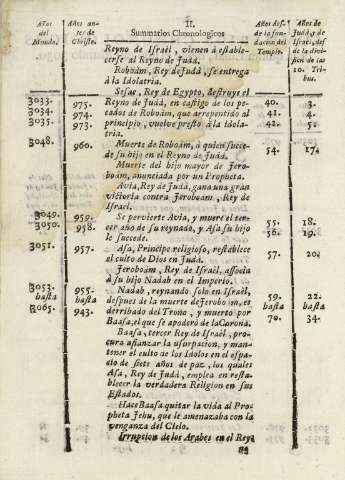 Años del Mundo.
Años antes de Christo.
II.
Summarios Chronologicos
Años des- de la fon- dacion del Templo.
Años de Judá, y de Israël, desde la divi- sion de las 10. Tri- bus.
Reyno de Israël, vienen à estable-
cerse al Reyno de Judá.
Roboám, Rey de Judá, se entrega
à la Idolatria.
Sesac, Rey de Egypto, destruye el
3033. 975. Reyno de Judá, en castigo de los pe- 40. 3.
3034. 974. cados de Roboám, que arrepentido al 41. 4.
3035. 973. principio, vuelve presto à la Idola- 42. 5.
tria.
3048. 960. Muerte de Roboám, à quien succe- 54. 17.
de su hijo en el Reyno de Judá.
Muerte del hijo mayor de Jero-
boám, anunciada por un Propheta.
Avia, Rey de Judá, gana una gran
victoria contra Jeroboám, Rey de
Israël.
3049. 959. Se pervierte Avia, y muere el ter- 55. 18.
3050. 958. cer año de su reynado, y Asa su hijo 56. 19.
le succede.
3051. 957. Asa, Principe religioso, restablece 57. 20.
el culto de Dios en Judá.
Jeroboám, Rey de Israël, associa
à su hijo Nadab en el Imperio.
3053. 955. Nadab, reynando solo en Israël, 59. 22.
hasta hasta despues de la muerte de Jeroboám, es hasta hasta
3065. 943. derribado del Trono, y muerto por 70. 34.
Baasa, el que se apoderó de la Corona.
Baasa, tercer Rey de Israël, pro-
cura afianzar la usurpacion, y man-
tener el culto de los Idolos en el espa-
cio de siete años de paz, los quales
Asa, Rey de Judá, emplea en resta-
blecer la verdadera Religion en sus
Estados.
Hace Baasa quitar la vida al Pro-
pheta Jehu, que le amenazaba con la
venganza del Cielo.
Irrupcion de los Arabes en el Rey-